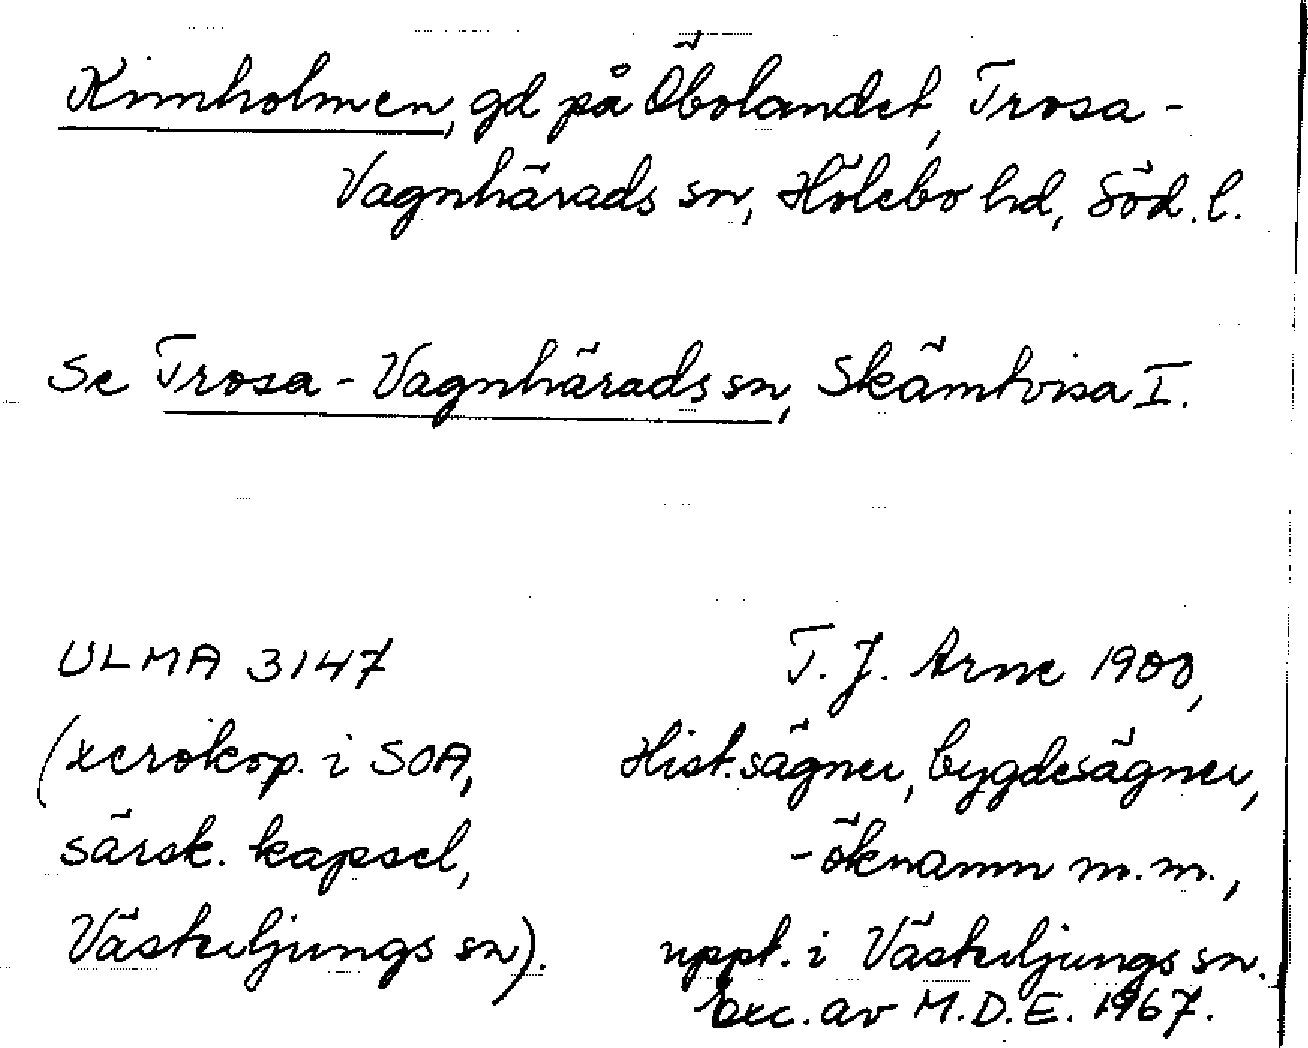 Kinnholmen, gd på Öbolandet, Trosa-
Vagnhärads sn, Hölebo hd, Söd. l.
Se Trosa-Vagnhärads sn, Skämtvisa I.
ULMA 3147
(xerokop. i SOA,
särsk. kapsel,
Västerljungs sn).
T. J. Arne 1900,
Hist. sägner, bygdesägner,
-öknamn m.m.,
uppt. i Västerljungs sn.
Exc. av M.D.E. 1967.